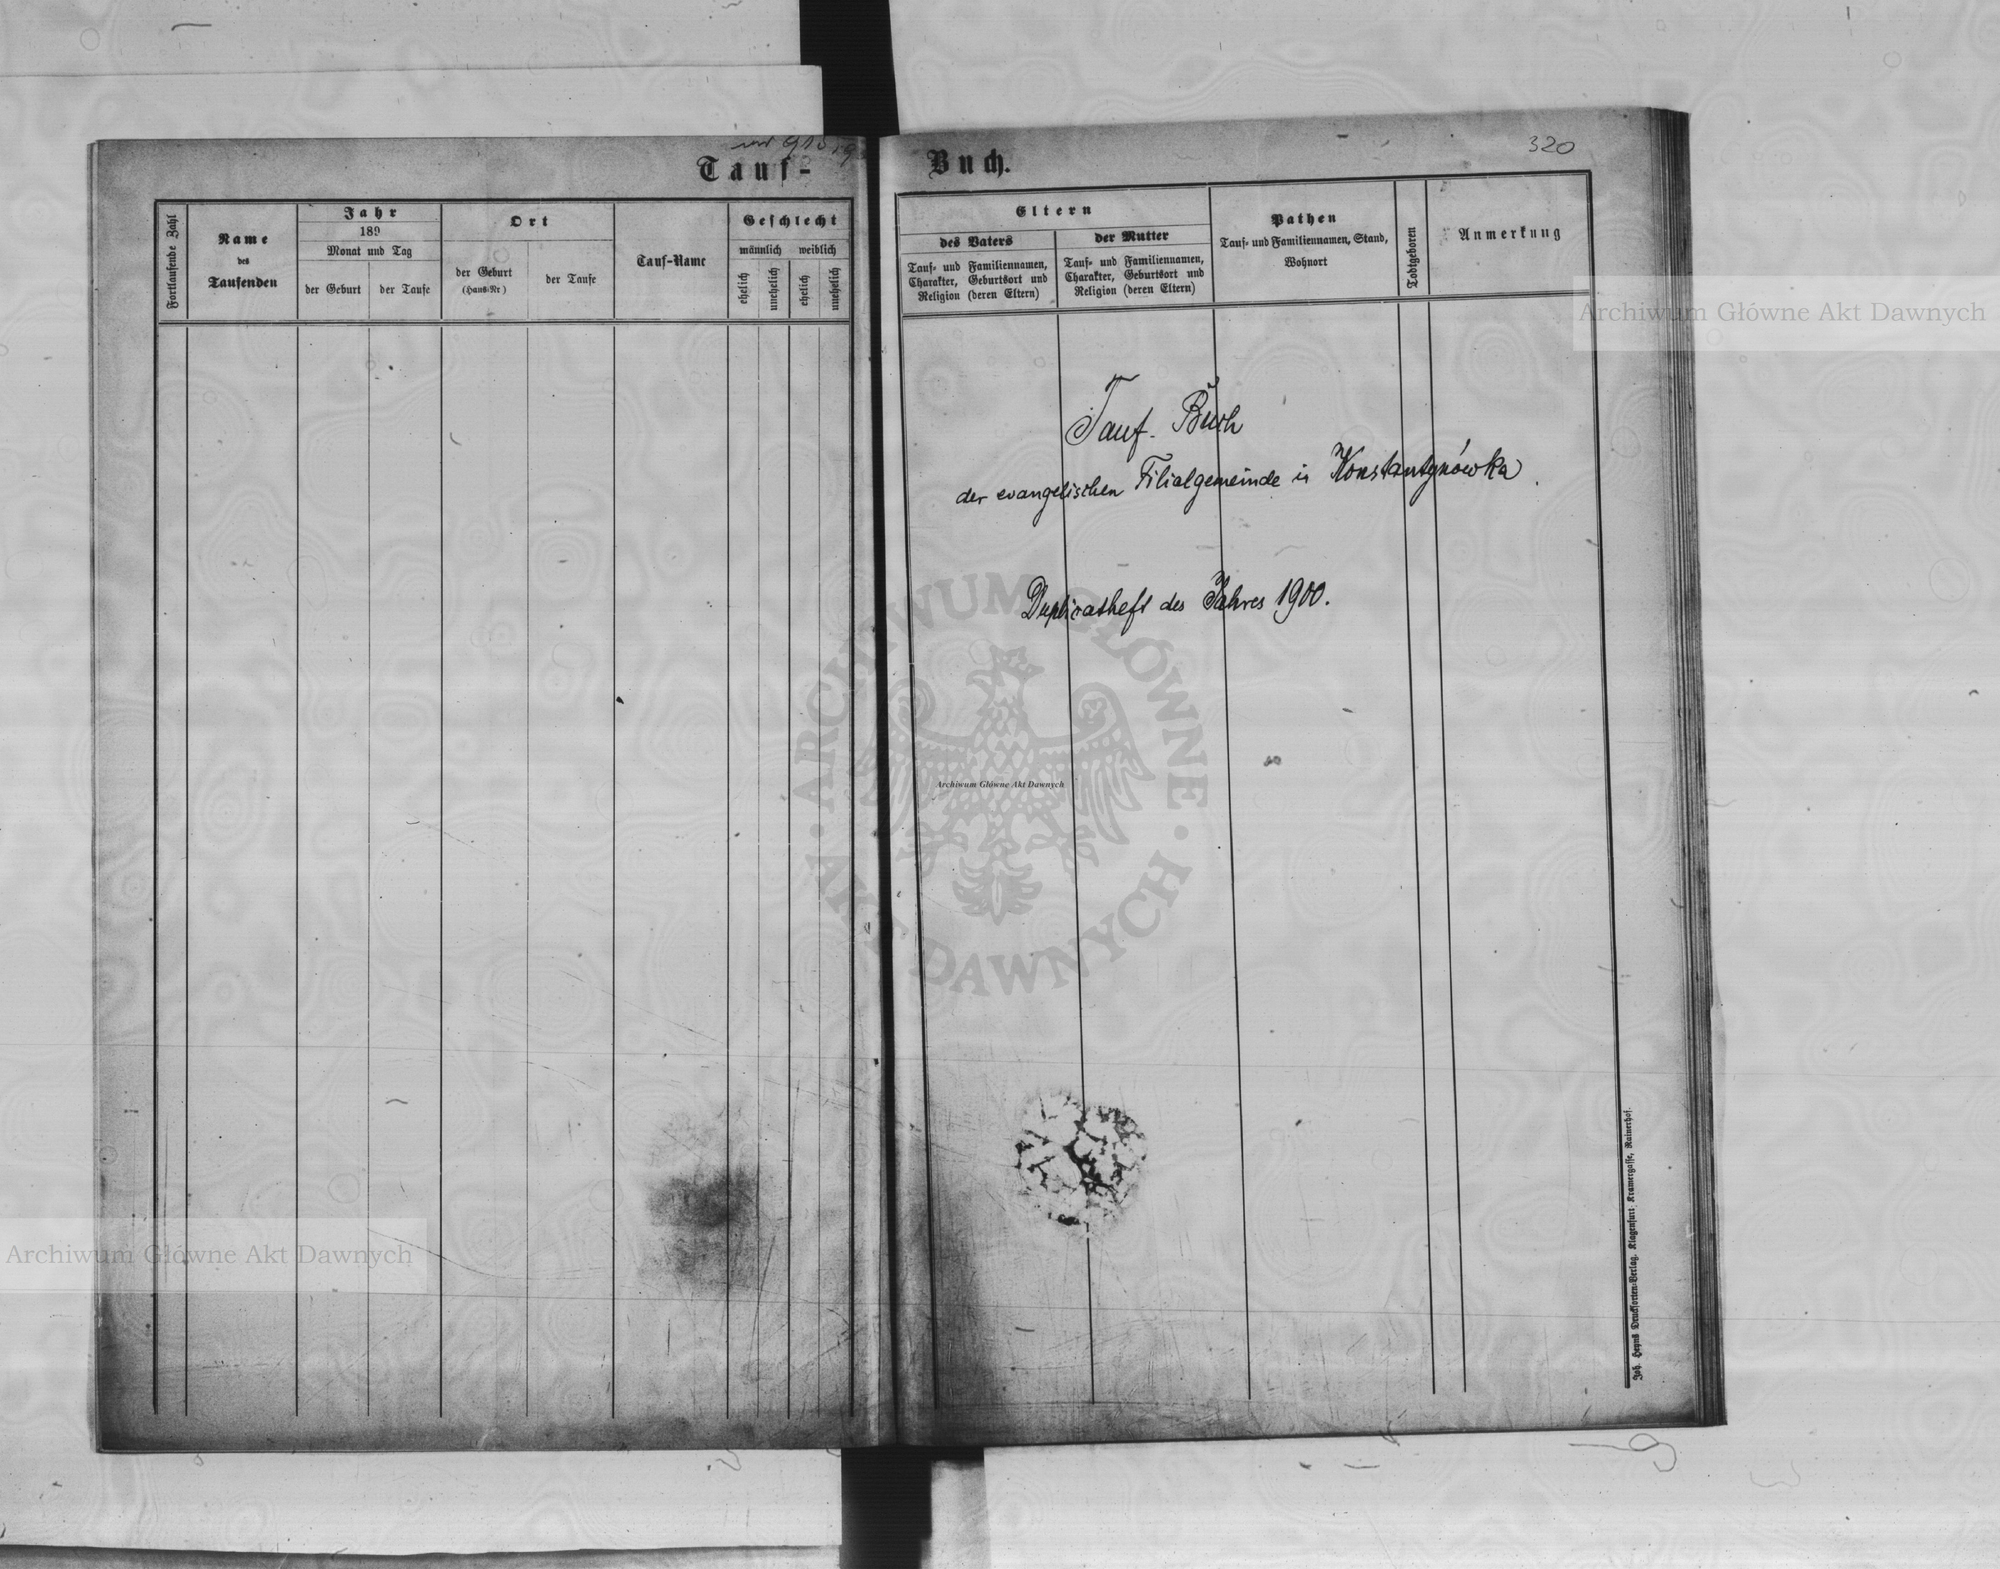 320
Tauf-
Buch.
Fortlaufende Zahl
Name
des
Taufenden
Jahr
189
Monat und Tag
der Geburt
der Taufe
Ort
der Geburt
(Haus-Nr)
der Taufe
Tauf-Name
Geschlecht
männlich weiblich
ehelich
unehelich
ehelich
unehelich
Eltern
des Vaters
Tauf- und Familiennamen,
Charakter, Geburtsort und
Religion (deren Eltern)
der Mutter
Tauf- und Familiennamen,
Charakter, Geburtsort und
Religion (deren Eltern)
Pathen
Tauf- und Familiennamen, Stand,
Wohnort
Todtgeboren
Anmerkung
Tauf-Buch
der evangelischen Filialgemeinde in Konstantynówka.
Duplicatheft des Jahres 1900.
Joh. Heyns Drucksorten-Verlag, Klagenfurt Kramergasse, Rainerhof.
Archiwum Główne Akt Dawnych
Archiwum Główne Akt Dawnych
Archiwum Główne Akt Dawnych
ARCHIWUM GŁÓWNE
AKT DAWNYCH